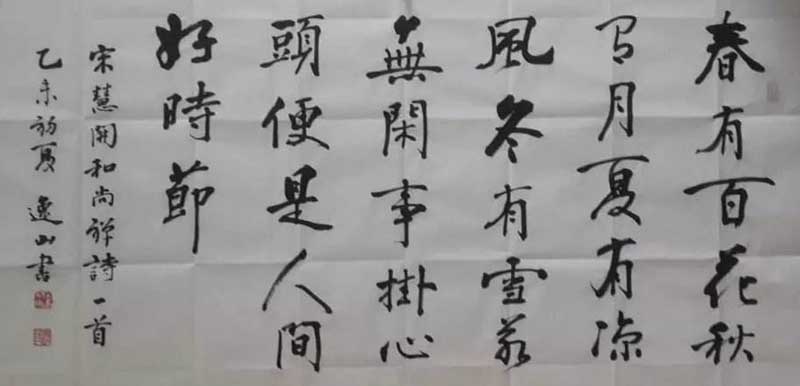 春有百花秋
有月夏有凉
風冬有雪若
無閑事掛心
頭便是人間
好時節
宋慧開和尚禅詩一首
乙未初夏 逸山書